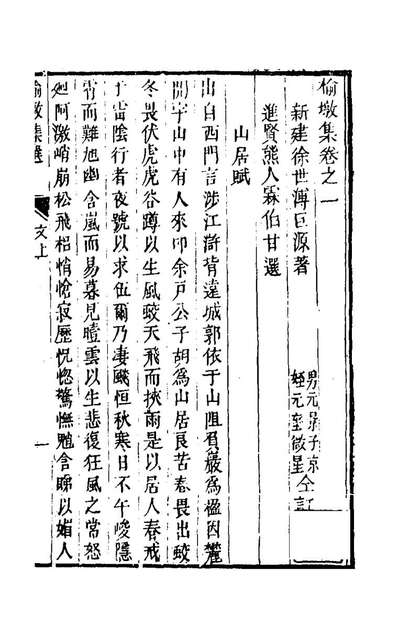 榆墩集卷之一
新建徐世溥巨源著
進賢熊人霖伯甘選
男元
姪元
仝
山居賦
出自西門言涉江滸背遠城郭依于山阻負巖為楹因麓
開宇山中有人來叩余戶公子胡為山居良苦春畏出蛟
冬畏伏虎虎谷蹲以生風蛟天飛而挾雨是以居人春戒
于雷陰行者夜號以求伍爾乃淒飈恒秋寒日不午峻隱
霄而難旭幽含嵐而易暮見曀雲以生悲復狂風之常怒
𢌞阿激峭崩松飛梠悄愴寂歷怳惚驚憮魑含睇以媚人
榆墩集選
文上
一